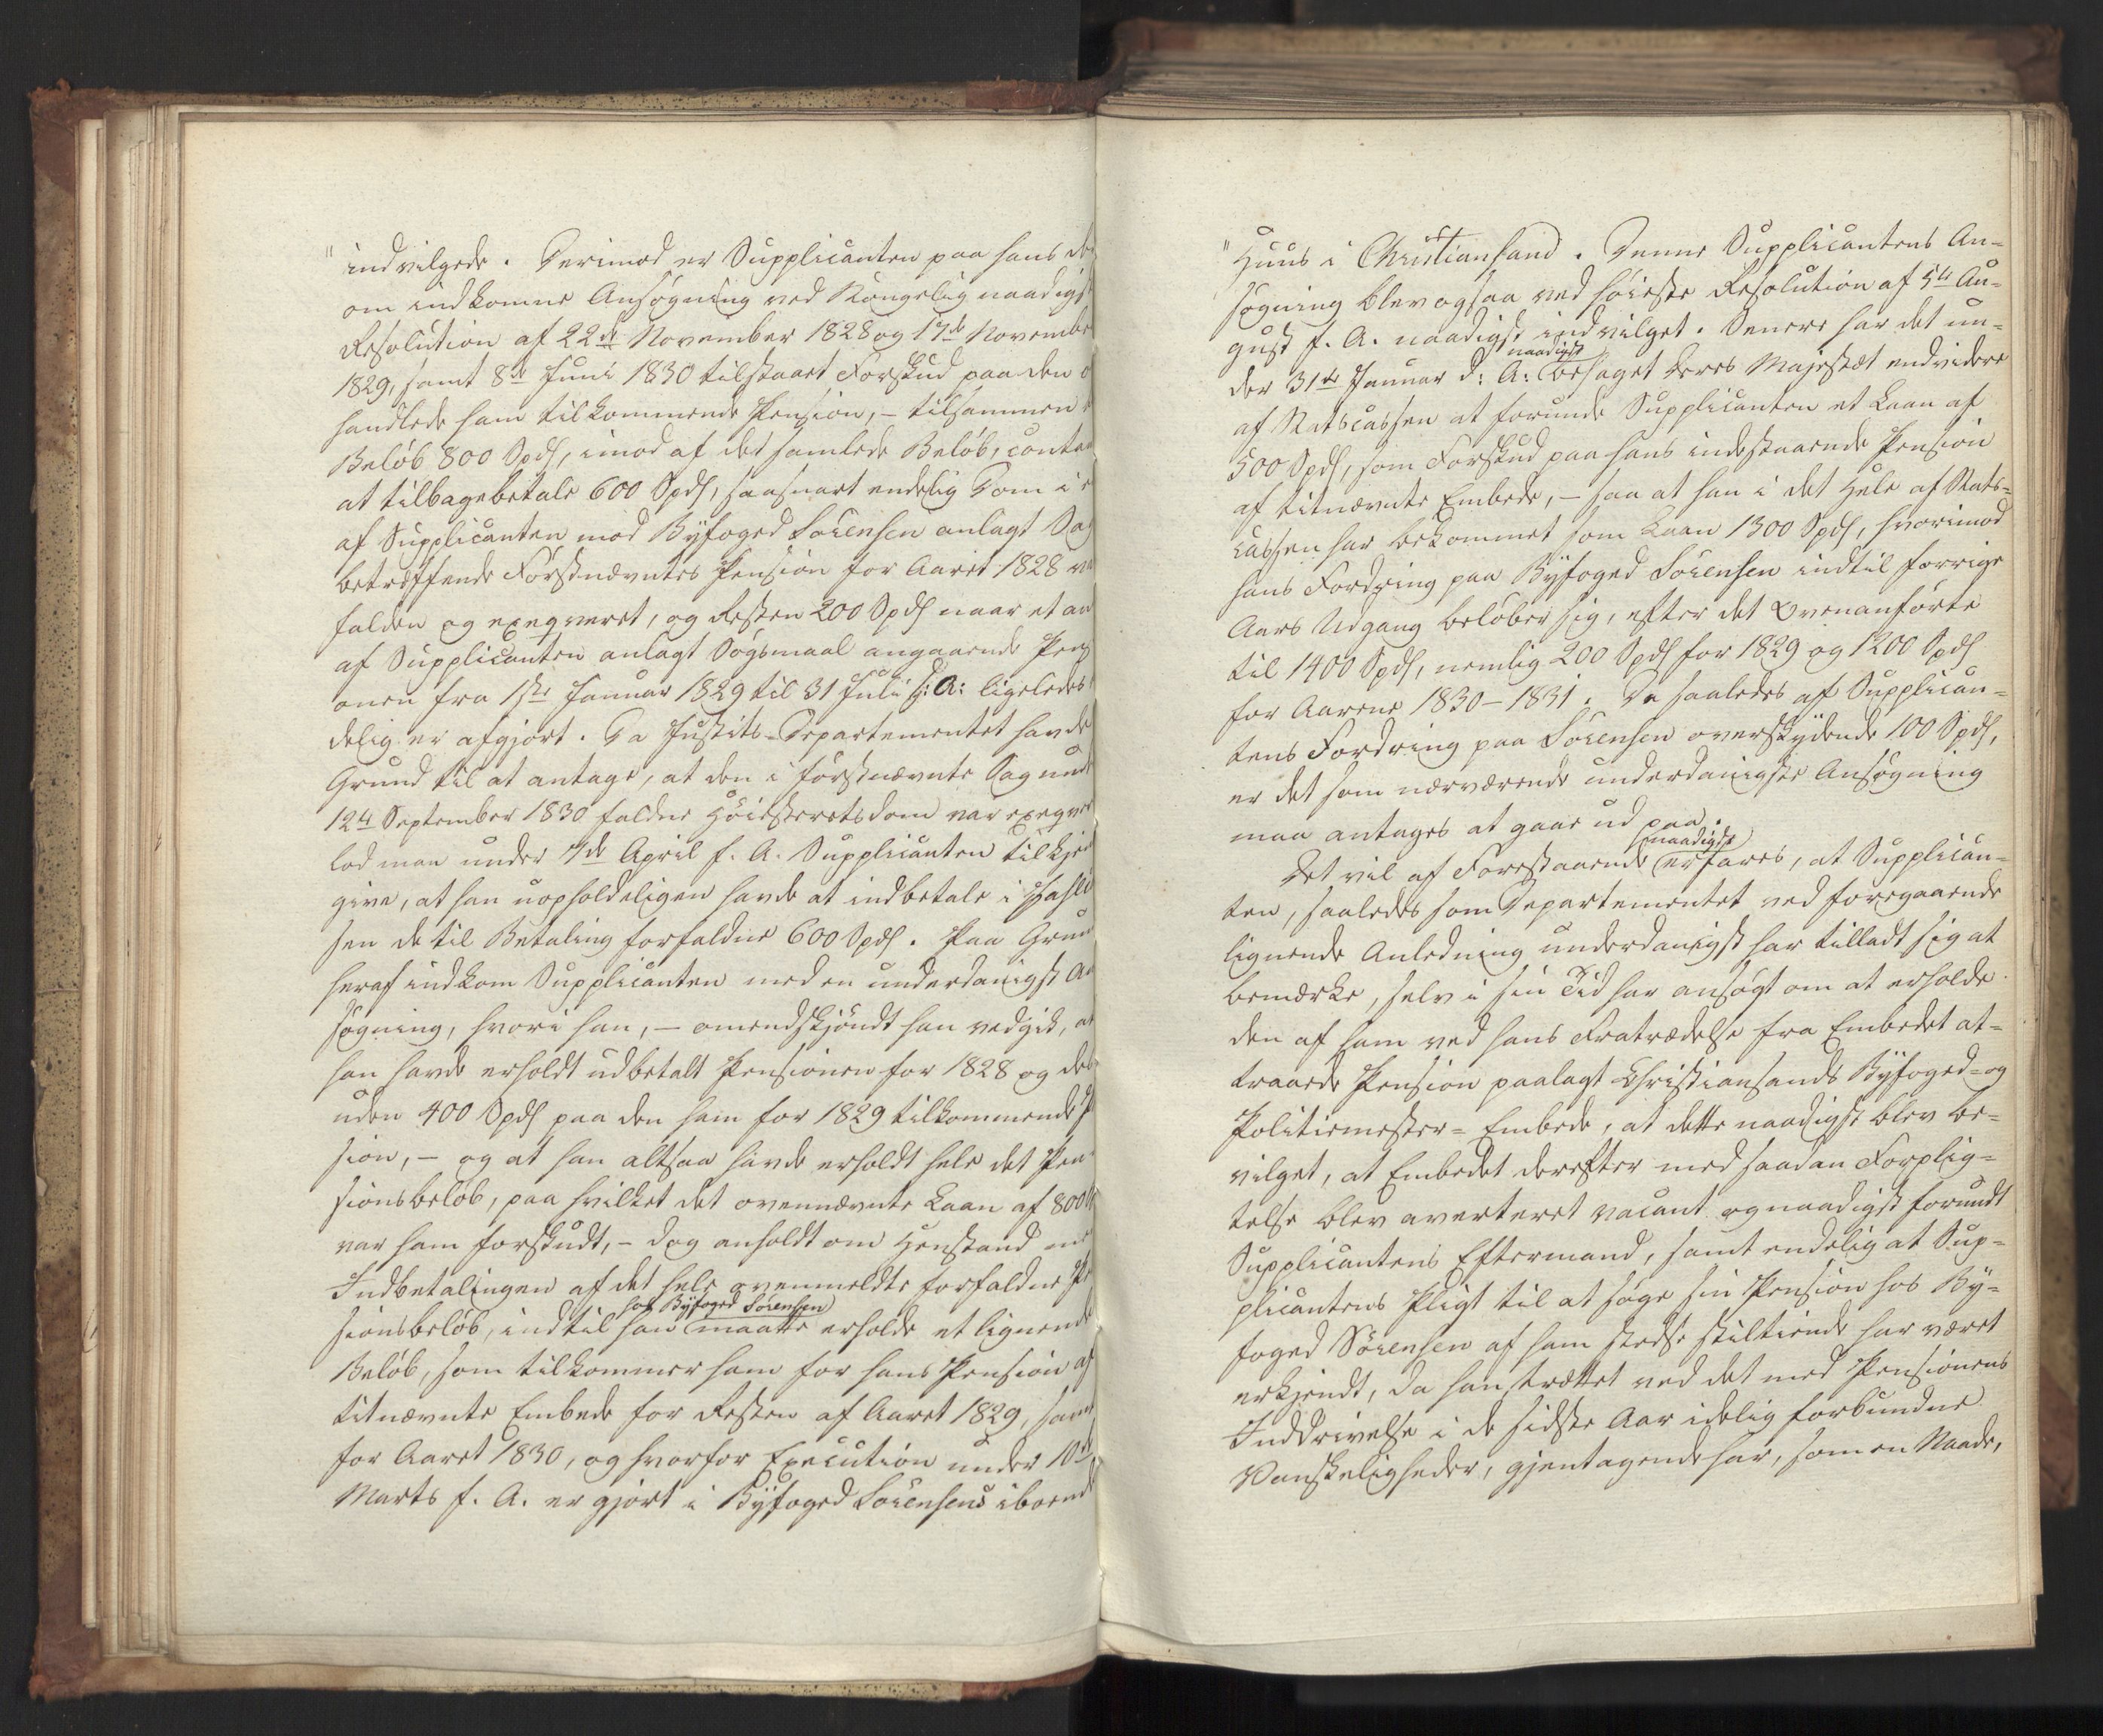 " indvilgede. Derimod er Supplicanten paa hans der
om indkomne Ansøgning ved Kongelig naadigst
Resolution af 22de November 1828 og 17de Novembe
1829, samt 8de Juni 1830 tilstaaet Forskud paa den
handlede ham tilkommende Pension, - tilsammen
Beløb 800 Spd, imod af det samlede Beløb, contan
at tilbagebetale 600 Spd, saasnart endelig Dom i
af Supplicanten mod Byfoged Sörensen anlagt Sag
betræffende Førstnævntes Pension for Aaret 1828 va
falden og exeqveret, og Resten 200 Spd naar et an
af Supplicanten anlagt Søgsmaal angaaende Pensi
onen fra 1ste Januar 1829 til 31 Juli s: A: ligeledes
delig er afgjort. Da Justits-Departementet havde
Grund til at antage, at den i førstnævnte Sag unde
12te September 1830 faldne Høiesteretsdom var exeqver
lod man under 7de April f. A. Supplicanten tilkjende
give, at han uopholdeligen havde at indbetale i
sen de til Betaling forfaldne 600 Spd. Paa Grund
heraf indkom Supplicanten med en underdanigst An
søgning, hvori han, - omendskjøndt han vedgik, at
han havde erholdt udbetalt Pensionen for 1828 og des
uden 400 Spd paa den ham for 1829 tilkommende P
sion, - og at han altsaa havde erholdt hele det Pen
sionsbeløb, paa hvilket det ovennævnte Laan af 800
var ham forskudt, - dog anholdt om Henstand med
Indbetalingen af det hele ovenmeldte forfaldne Pen
sionsbeløb, indtil han hos Byfoged Sörensen maatte erholde et lignende
Beløb, som tilkommer ham for hans Pension af
titnævnte Embede for Resten af Aaret 1829, samt
for Aaret 1830, og hvorfor Execution under 10de
Marts f. A. er gjort i Byfoged Sörensens iboende
" Huus i Christiansand. Denne Supplicantens An-
søgning blev ogsaa ved høieste Resolution af 5te Au-
gust f. A. naadigst indvilget. Senere har det un-
der 31te Januar d: A: naadigst behaget Deres Majestæt endvidere
af Statscassen at forunde Supplicanten et Laan af
500 Spd, som Forskud paa hans indestaaende Pension
af titnævnte Embede, - saa at han i det Hele af Stats-
cassen har bekommet som Laan 1300 Spd, hvorimod
hans Fordring paa Byfoged Sörensen indtil forrige
Aars Udgang beløber sig, efter det Ovenanførte
til 1400 Spd, nemlig 200 Spd for 1829 og 1200 Spd
for Aarene 1830-1831. De saaledes af Supplican-
tens Fordring paa Sörensen overskydende 100 Spd,
er det som nærværende underdanigste Ansøgning
maa antages at gaae ud paa.
Det vil af Forestaaende naadigst erfares, at Supplican-
ten, saaledes som Departementet ved foregaaende
lignende Anledning underdanigst har tilladt sig at
bemærke, selv i sin Tid har ansøgt om at erholde
den af ham ved hans Fratrædelse fra Embedet at-
traaede Pension paalagt Christiansands Byfoged- og
Politiemester-Embede, at dette naadigst blev be-
vilget, at Embedet derefter med saadan Forplig-
telse blev averteret vacant og naadigst forundt
Supplicantens Eftermand, samt endelig at Sup-
plicantens Pligt til at søge sin Pension hos By-
foged Sörensen af ham stedse stiltiende har været
erkjendt, da han, trættet ved det med Pensionens
Inddrivelse i de sidste Aar idelig forbundne
Vanskeligheder, gjentagende har, som en Naade,